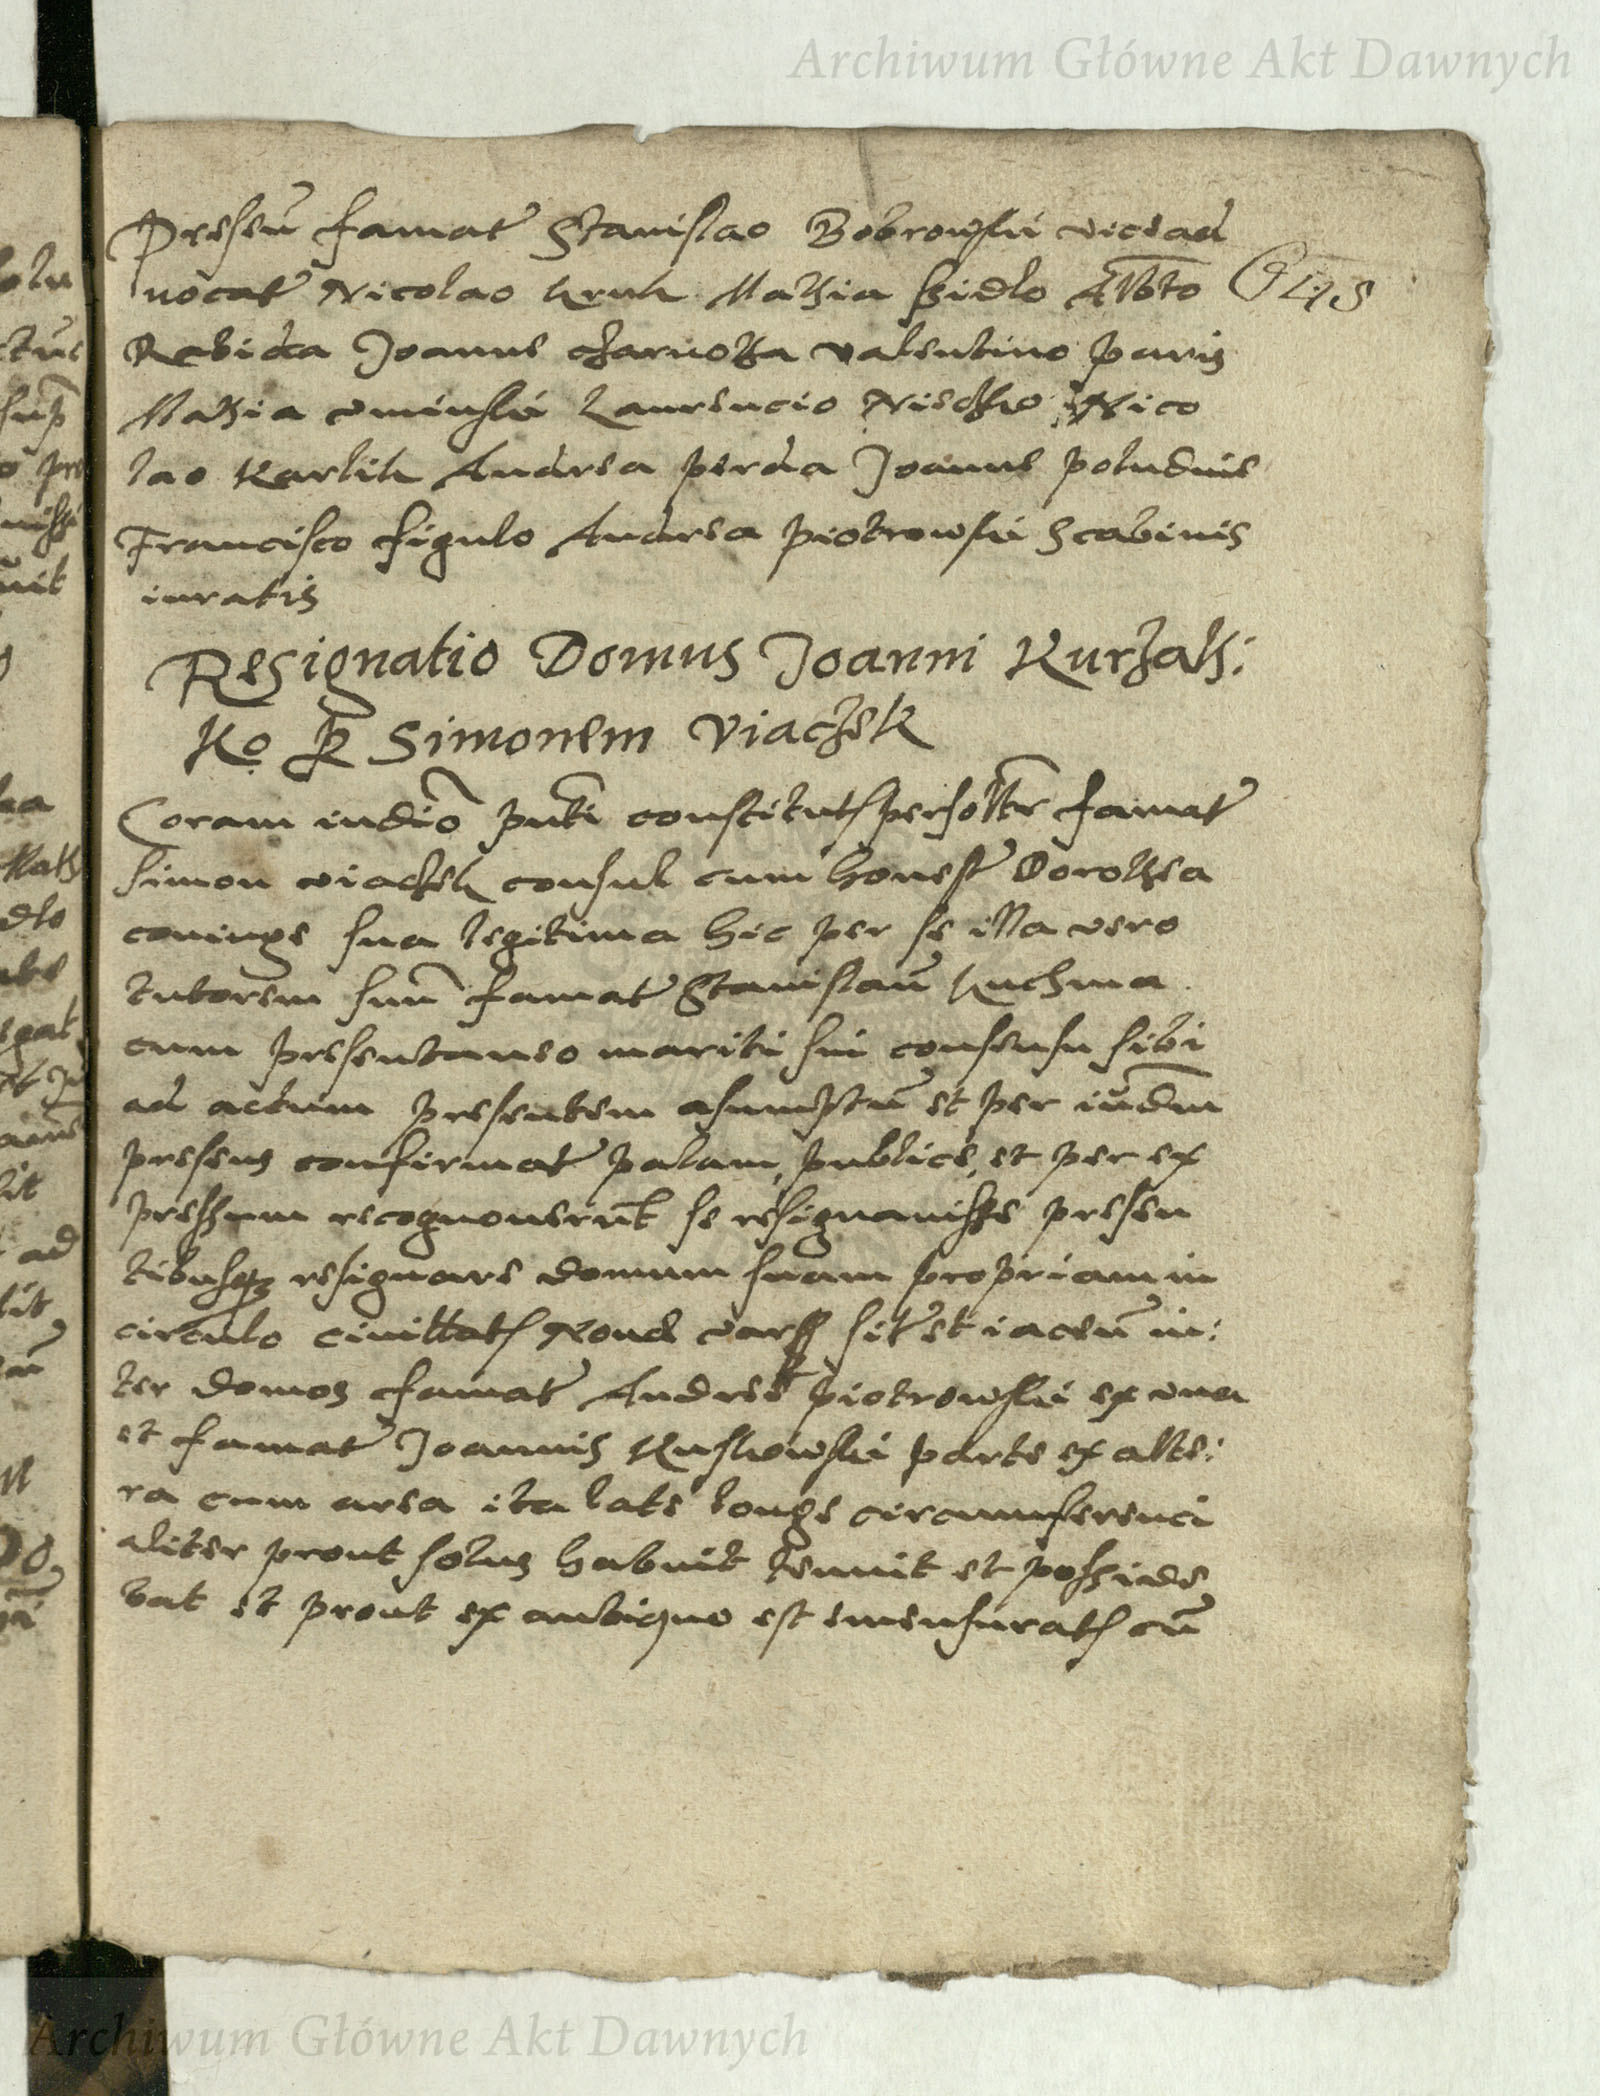 Archiwum Główne Akt Dawnych
Presen famat Stanislao Bobrowski vicead
vocat Nicolao kruk Mathia szidlo Albto
Rebida Joanne czarnotha valentino paris
Mathia vminski Laurencio Nieczko Nico
lao Karlik Andrea perda Joanne poludnie
Francisco figulo Andrea piotrowski Scabinis
iuratis
Resignatio Domus Joanni Kurzath:
Ko per Simonem Viaczek
Coram iudio pnti constitutus persolr famat
Simon viaczek consul cum honest Dorothea
coniuge sua legitima hic per se illa vero
tutorem suu famat Stanislau kuchma
cum presentaneo mariti sui consensu sibi
ad actum presentem asumptu et per iudm
presens confirmat palam, publice, et per ex
pressum recognouerut se resignauisse presen
tibusque resignare domum suam propriam in
circulo ciuittatis Noue vars sit et iaceu in:
ter domos famat Andree piotrowski ex vna
et famat Joannis Kuskowski parte ex alte:
ra cum area ita late longe circumferenci
aliter prout solus habuit tenuit et posside
bat et prout ex antiquo est emensuratus cu
Archiwum Główne Akt Dawnych